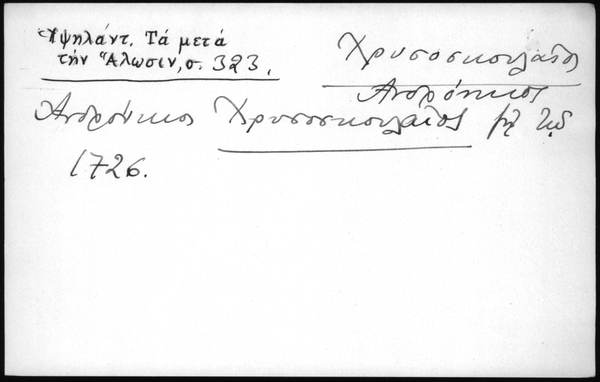 Ὑψηλάντ. Τά μετά
τήν Ἅλωσιν, σ. 323.
Χρυσοσκουλαῖος
Ἀνδρόνικος
Ἀνδρόνικος Χρυσοσκουλαῖος
1726.